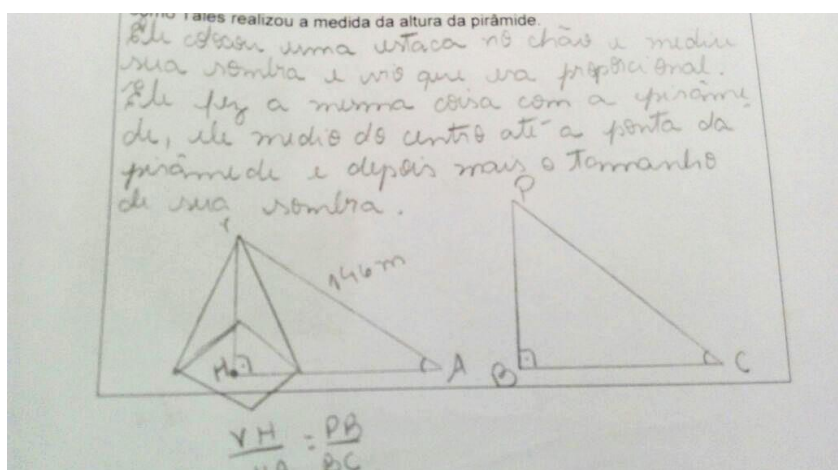 como Tales realizou a medida da altura da pirâmide.
Ele colocou uma estaca no chão e mediu
sua sombra e viu que era proporcional.
Ele fez a mesma coisa com a pirâmi
de, ele medio do centro até a ponta da
pirâmide e depois mais o Tamanho
de sua sombra.
P
146m
H A B C
VH = PB
BC